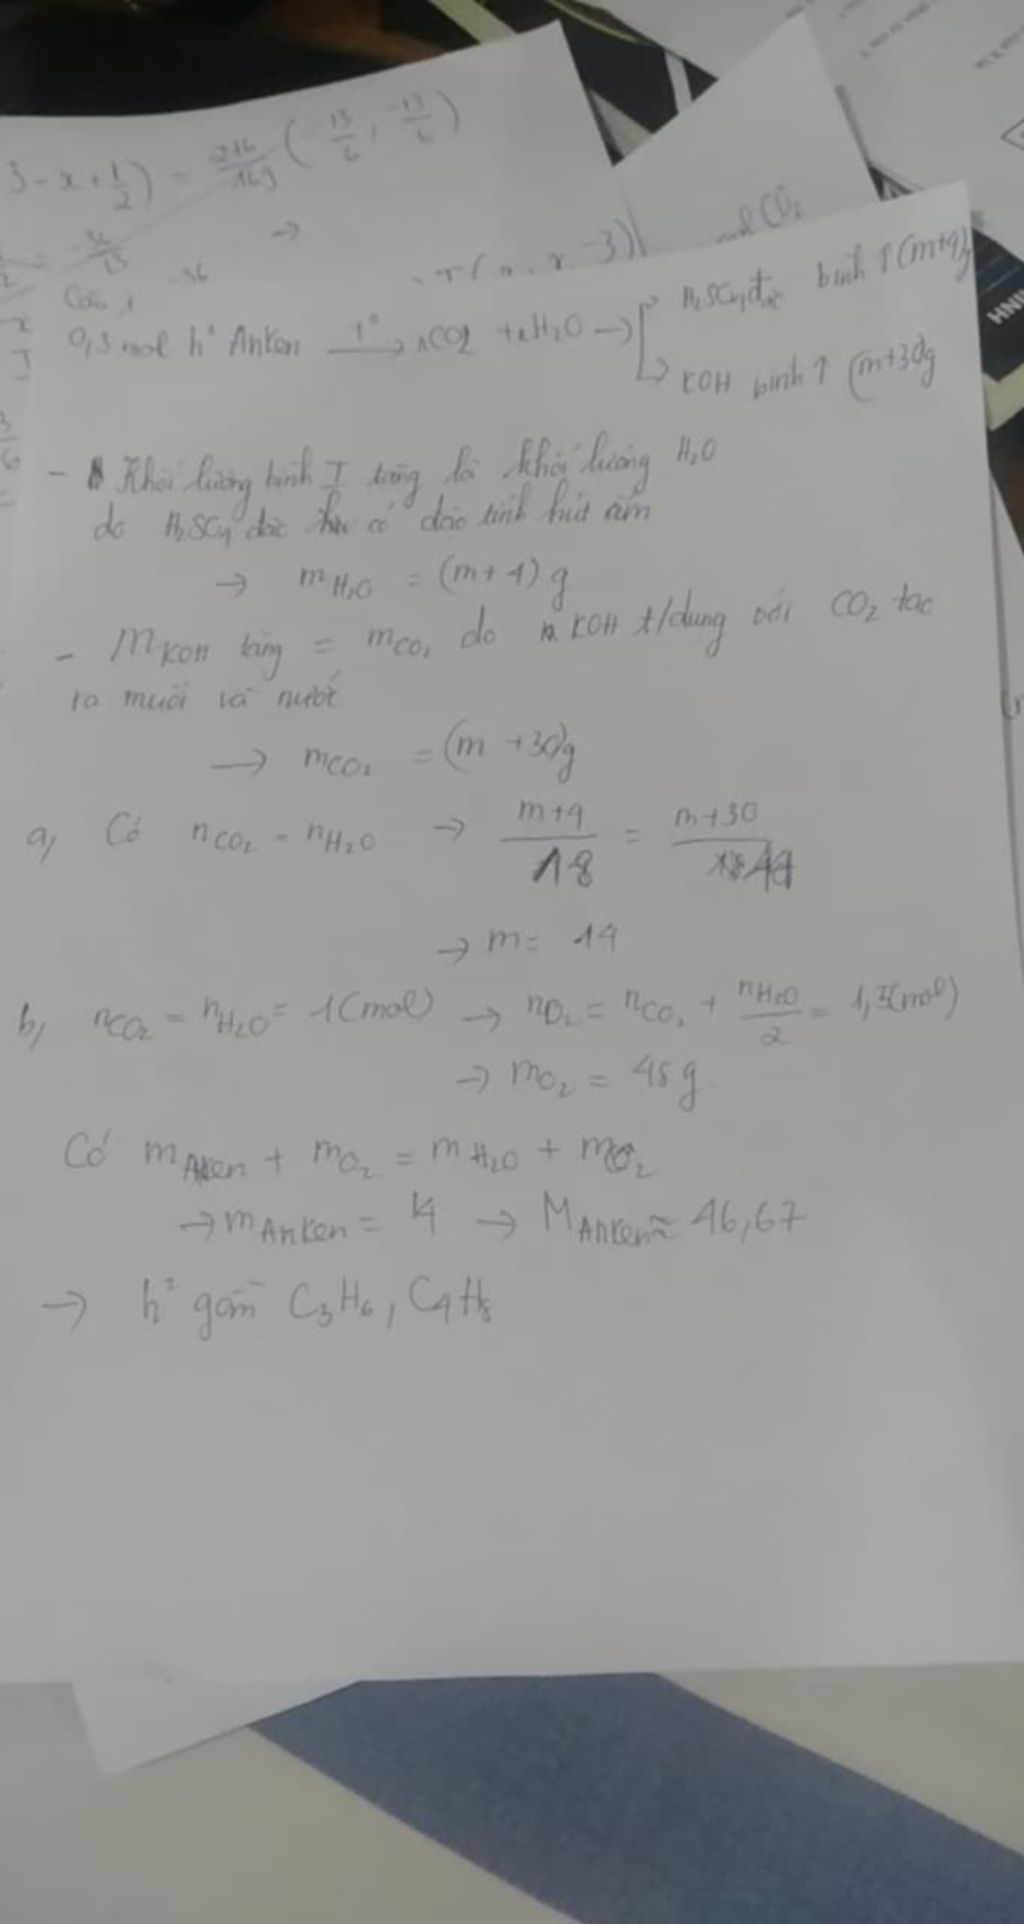 3 - x + 1/2) = 216/169 (-13/6, -13/6)
→
CO2
Câu 1
0,3 mol h² Anken —t°→ nCO2 + nH2O → H2SO4 đặc bình ↑ (m+4)g
KOH bình ↑ (m+30)g
- Khối lượng bình I tăng là khối lượng H2O
do H2SO4 đặc có đặc tính hút ẩm
→ mH2O = (m+4)g
- mKOH tăng = mCO2 do KOH t/dụng với CO2 tạo
ra muối và nước
→ mCO2 = (m+30)g
a, Có nCO2 = nH2O → (m+4)/18 = (m+30)/44
→ m = 14
b, nCO2 = nH2O = 1(mol) → nO2 = nCO2 + nH2O/2 = 1,5(mol)
→ mO2 = 48g
Có mAnken + mO2 = mH2O + mCO2
→ mAnken = 14 → MAnken ≈ 46,67
→ h² gồm C3H6, C4H8